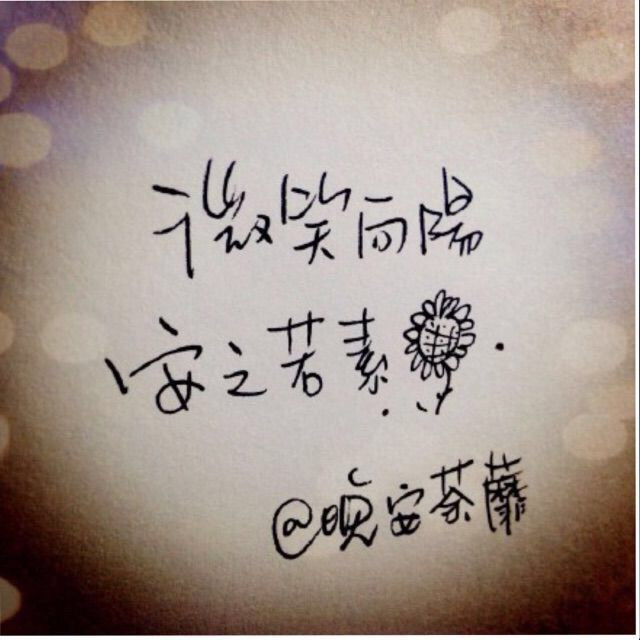 微笑向陽
安之若素
@晚安荼蘼